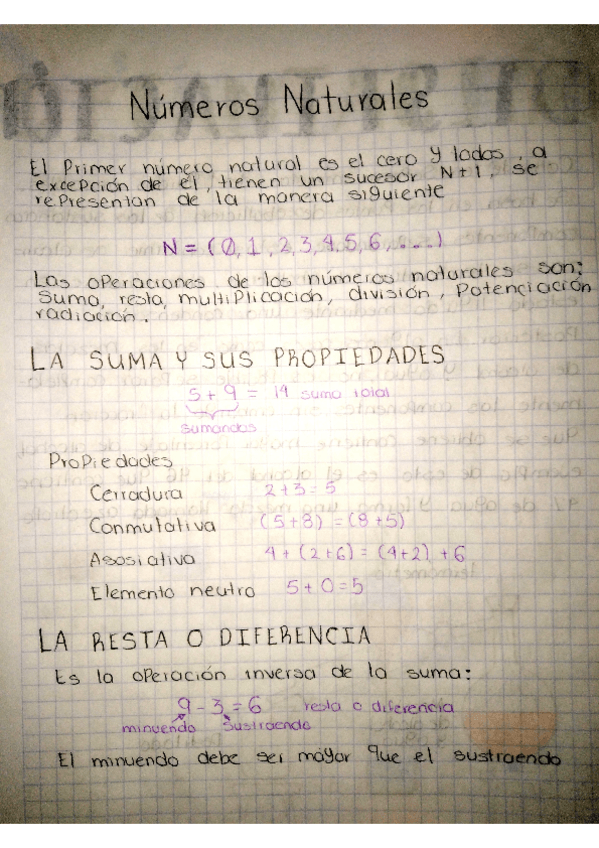 Números Naturales
El Primer número natural es el cero y todos, a
excepción de él, tienen un sucesor N+1, se
representan de la manera siguiente
N = (0, 1, 2, 3, 4, 5, 6, ...)
Las operaciones de los números naturales son:
Suma, resta, multiplicación, división, Potenciación
radiación.
LA SUMA Y SUS PROPIEDADES
5 + 9 = 14 suma total
sumandos
Propiedades
Cerradura 2+3=5
Conmutativa (5+8) = (8+5)
Asosiativa 4+ (2+6) = (4+2) +6
Elemento neutro 5+0=5
LA RESTA O DIFERENCIA
Es la operación inversa de la suma:
9-3=6 resta o diferencia
minuendo sustraendo
El minuendo debe ser mayor que el sustraendo